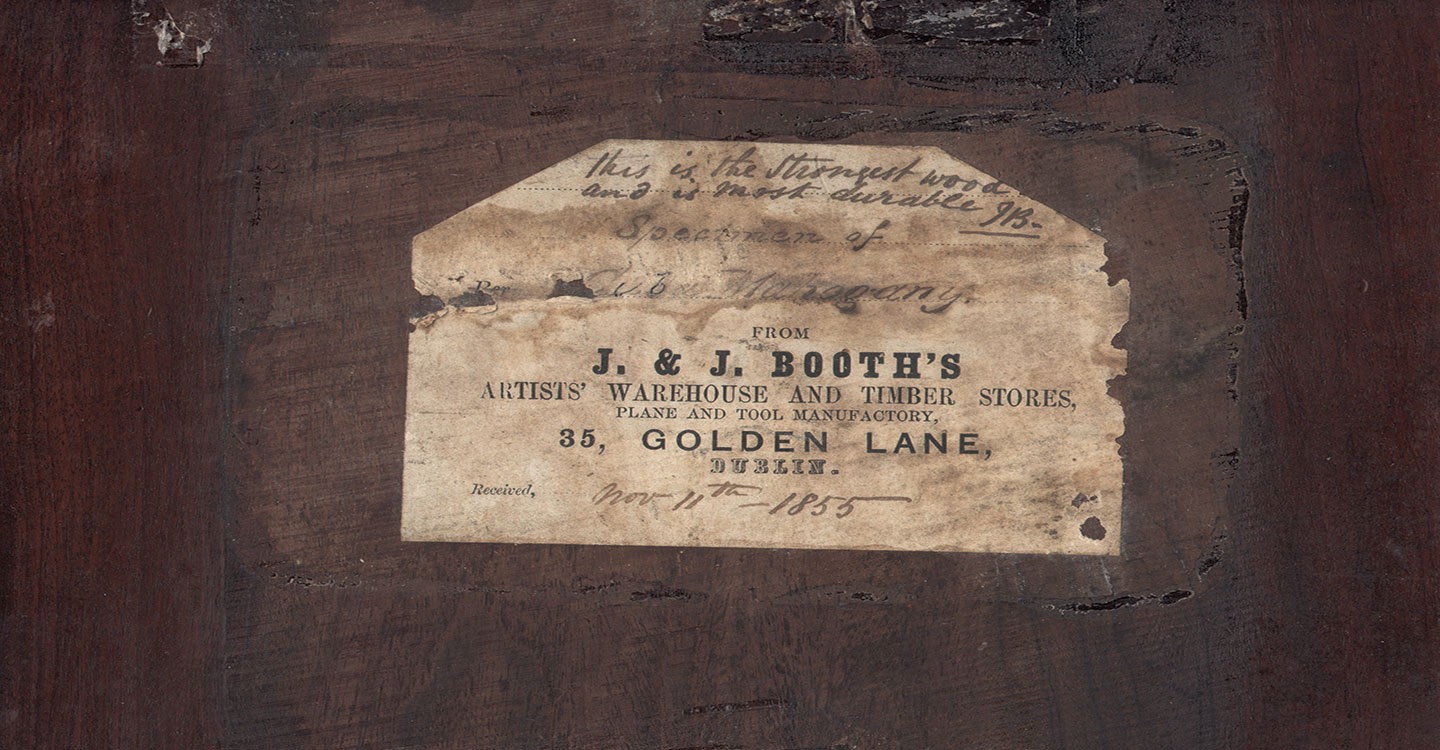 this is the strongest wood
and is most durable JB-
Specimen of
Per Cuba Mahogany.
FROM
J. & J. BOOTH'S
ARTISTS' WAREHOUSE AND TIMBER STORES,
PLANE AND TOOL MANUFACTORY,
35, GOLDEN LANE,
DUBLIN.
Received, Nov 11th - 1855